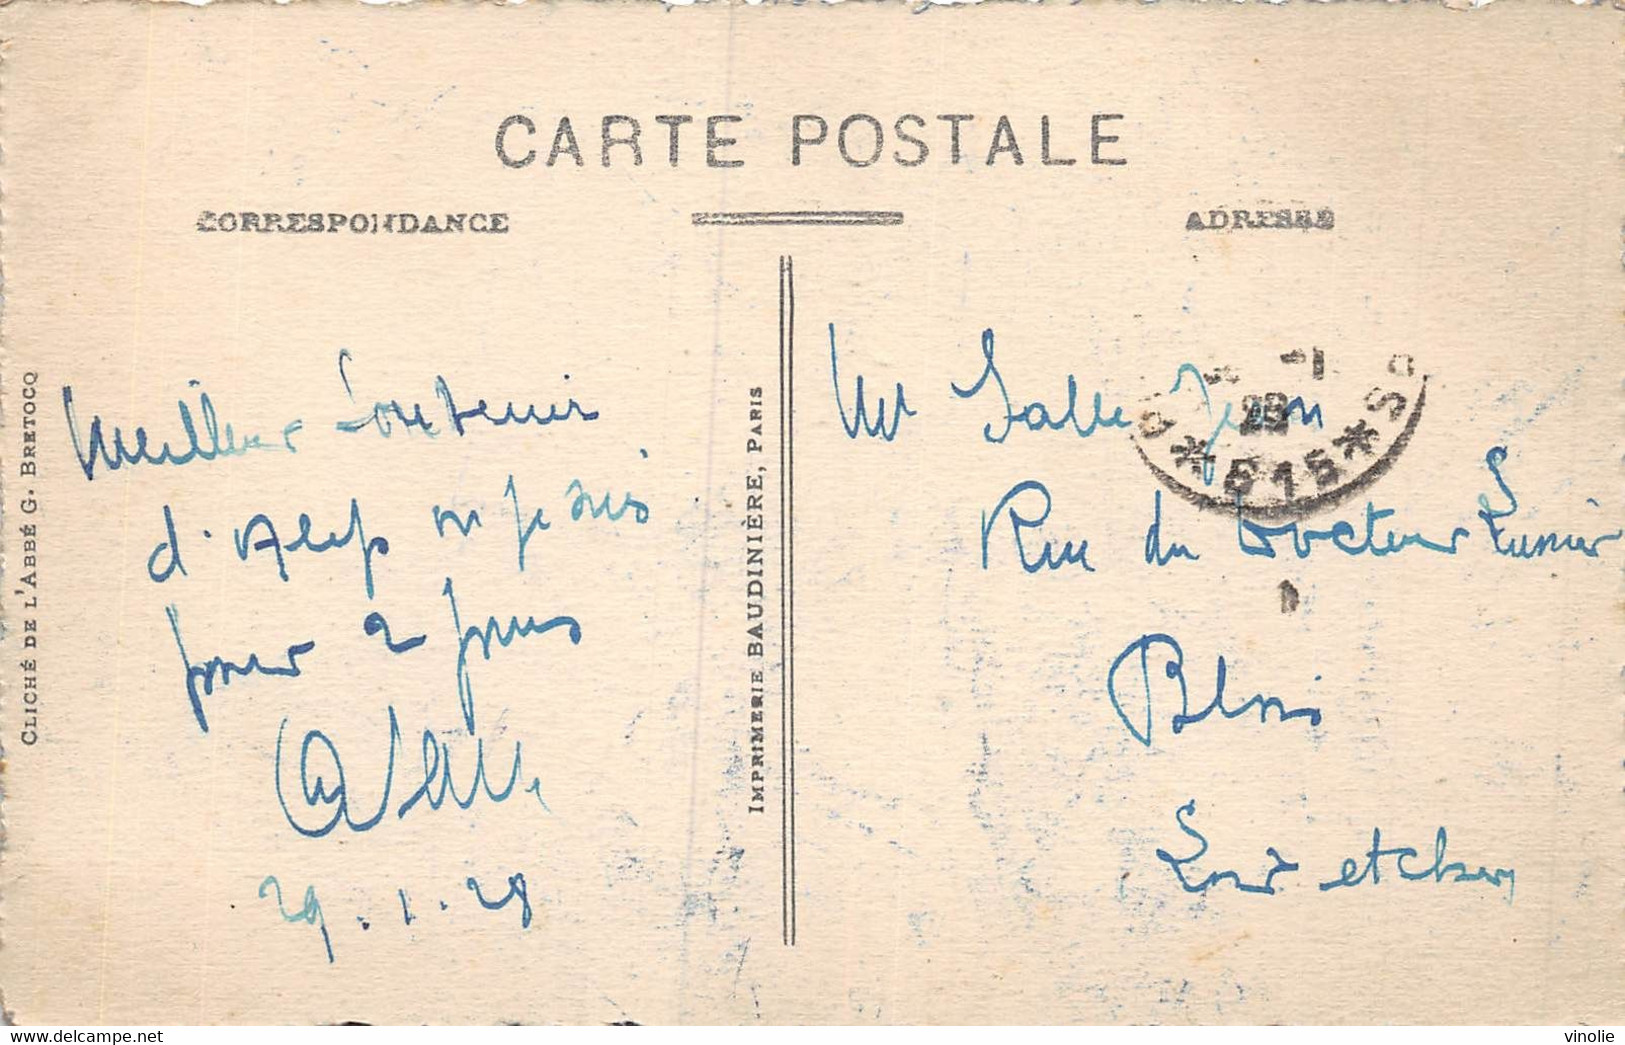 CARTE POSTALE
CORRESPONDANCE
ADRESSE
CLICHÉ DE L'ABBÉ G. BRETOCQ
Meilleur Souvenir
d'Alep où je suis
pour 2 jours
29.1.28
IMPRIMERIE BAUDINIÈRE, PARIS
Mr Salle Jean
Rue du Docteur Lunier
Blois
Loir et cher
28
* 615 * S
vinolie